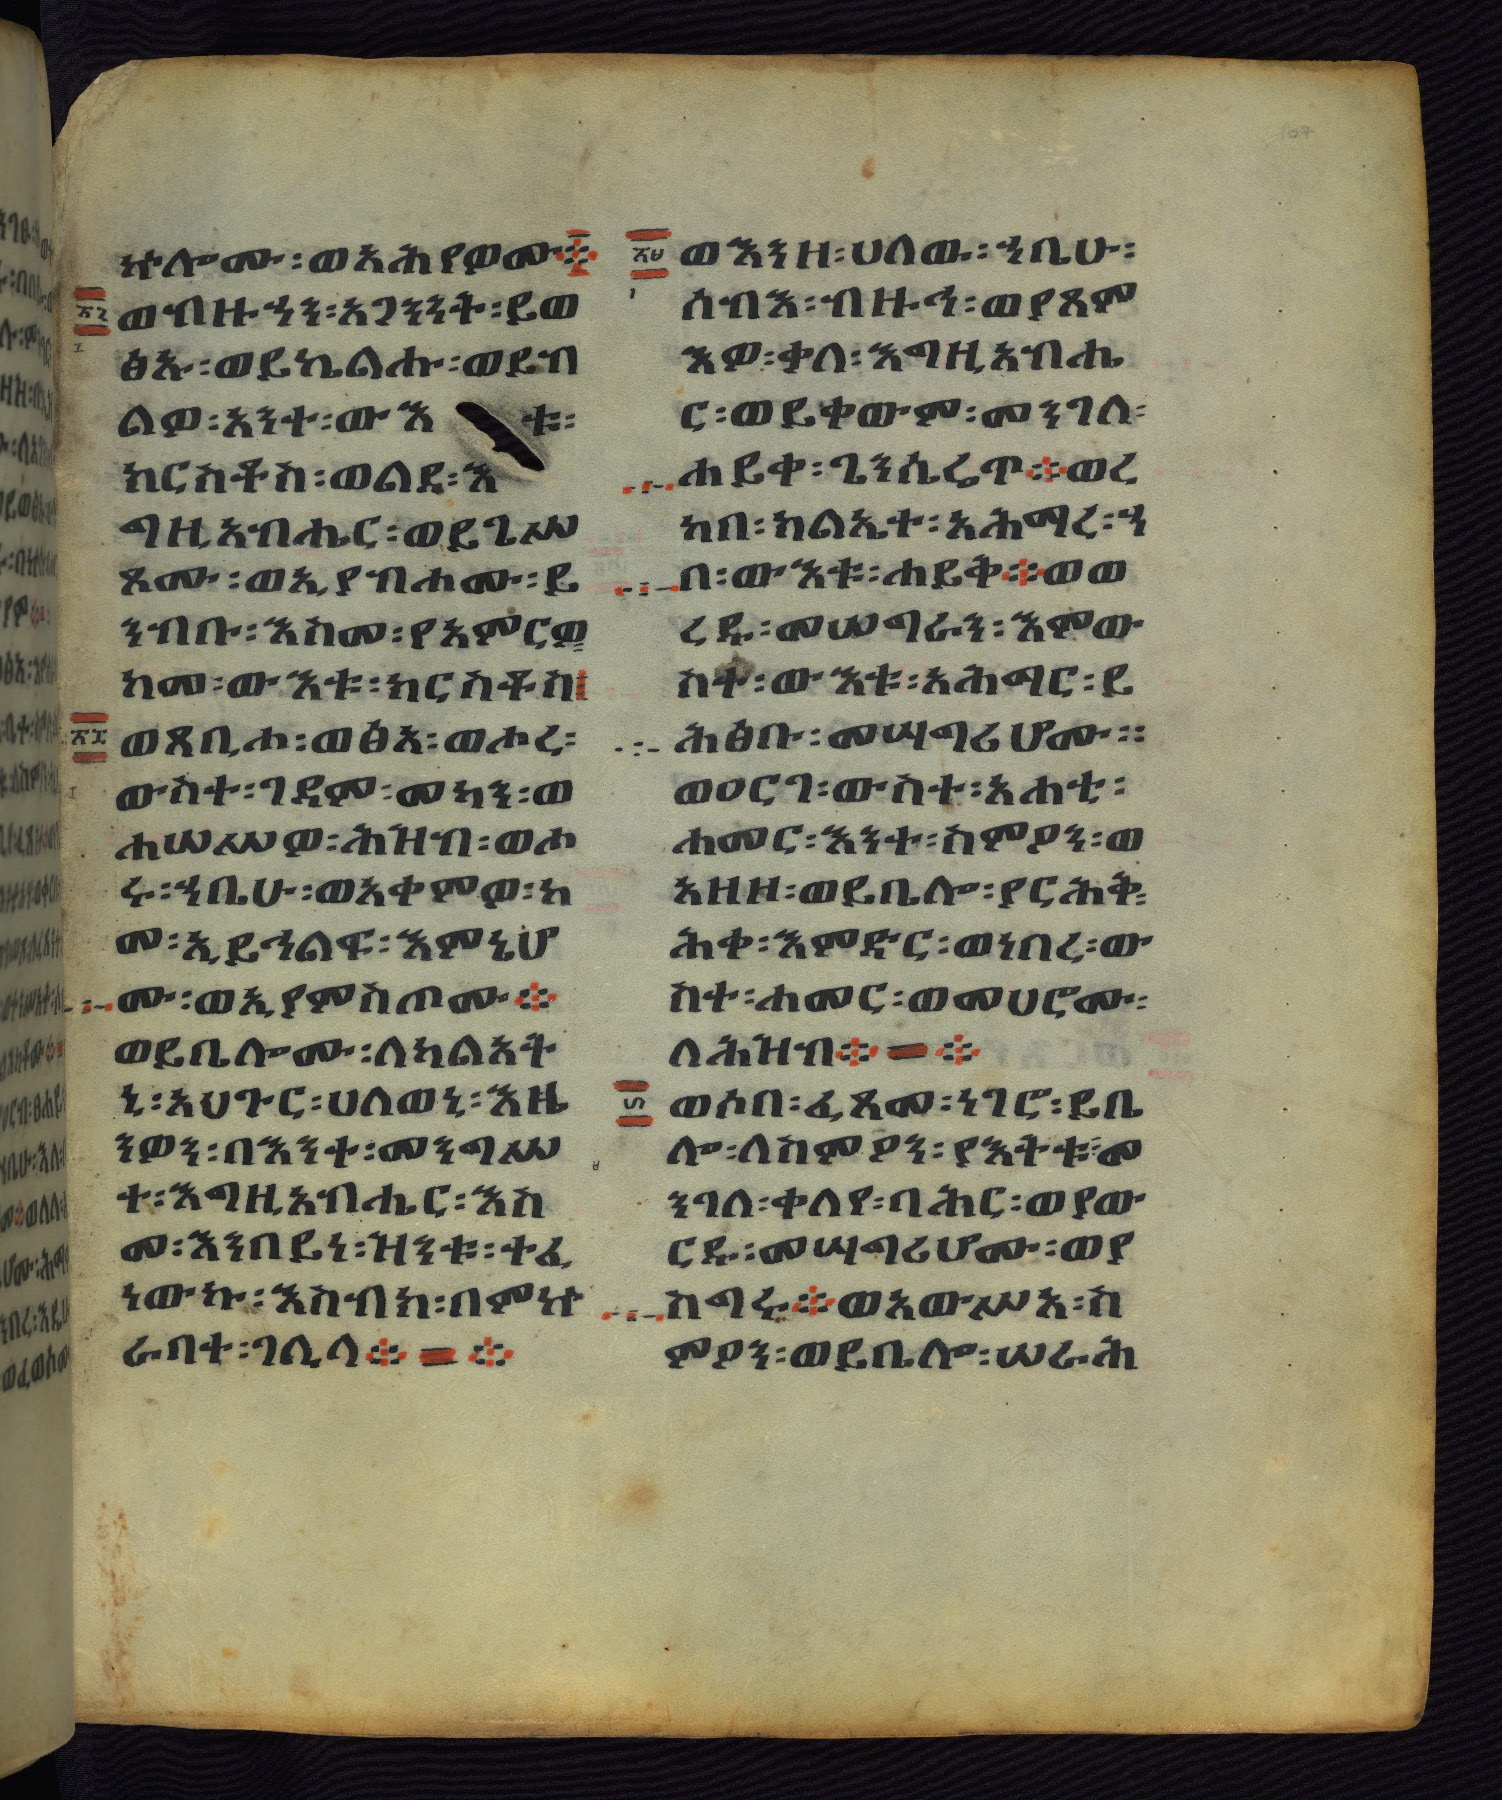 ኵሎሙ፡ወአሕየወሙ፨
ወብዙኃን፡አጋንንት፡ይወ
ፅኡ፡ወይኬልሑ፡ወይብ
ልዎ፡አንተ፡ውእቱ፡
ክርስቶስ፡ወልደ፡እ
ግዚአብሔር፡ወይጌሥ
ጾሙ፡ወኢያብሐሙ፡ይ
ንብቡ፡እስመ፡የአምርዎ
ከመ፡ውእቱ፡ክርስቶስ፡
ወጸቢሖ፡ወፅአ፡ወሖረ፡
ውስተ፡ገዳም፡መካን፡ወ
ሐሠሥዎ፡ሕዝብ፡ወሖ
ሩ፡ኀቤሁ፡ወአቀምዎ፡ከ
መ፡ኢይኅልፍ፡እምኔሆ
ሙ፡ወኢየምስጦሙ፨
ወይቤሎሙ፡ለካልአት
ኒ፡አህጉር፡ሀለወኒ፡እዜ
ንወን፡በእንተ፡መንግሥ
ተ፡እግዚአብሔር፡እስ
መ፡እንበይነ፡ዝንቱ፡ተፈ
ነውኩ፡እስብክ፡በምኵ
ራባተ፡ገሊላ፨=፨
107
፳፬
ወእንዘ፡ሀለው፡ኀቤሁ፡
ሰብእ፡ብዙኅ፡ወያጸም
እዎ፡ቃለ፡እግዚአብሔ
ር፡ወይቀውም፡መንገለ፡
ሐይቀ፡ጌንሴሬጥ፨ወረ
ከበ፡ክልኤተ፡አሕማረ፡ኀ
በ፡ውእቱ፡ሐይቅ፨ወወ
ረዱ፡መሠግራን፡እምው
ስተ፡ውእቱ፡አሕማር፡ይ
ሕፅቡ፡መሣግሪሆሙ፡፡
ወዐርገ፡ውስተ፡አሐቲ፡
ሐመር፡እንተ፡ስምዖን፡ወ
አዘዘ፡ወይቤሎ፡ያርሕቅ፡
ሕቀ፡እምድር፡ወነበረ፡ው
ስተ፡ሐመር፡ወመሀሮሙ፡
ለሕዝብ፨=፨
ወሶበ፡ፈጸመ፡ነገሮ፡ይቤ
ሎ፡ለስምዖን፡የአትቱ፡መ
ንገለ፡ቀላየ፡ባሕር፡ወያው
ርዱ፡መሣግሪሆሙ፡ወያ
ስግሩ፨ወአውሥአ፡ስ
ምዖን፡ወይቤሎ፡ሠራሕ